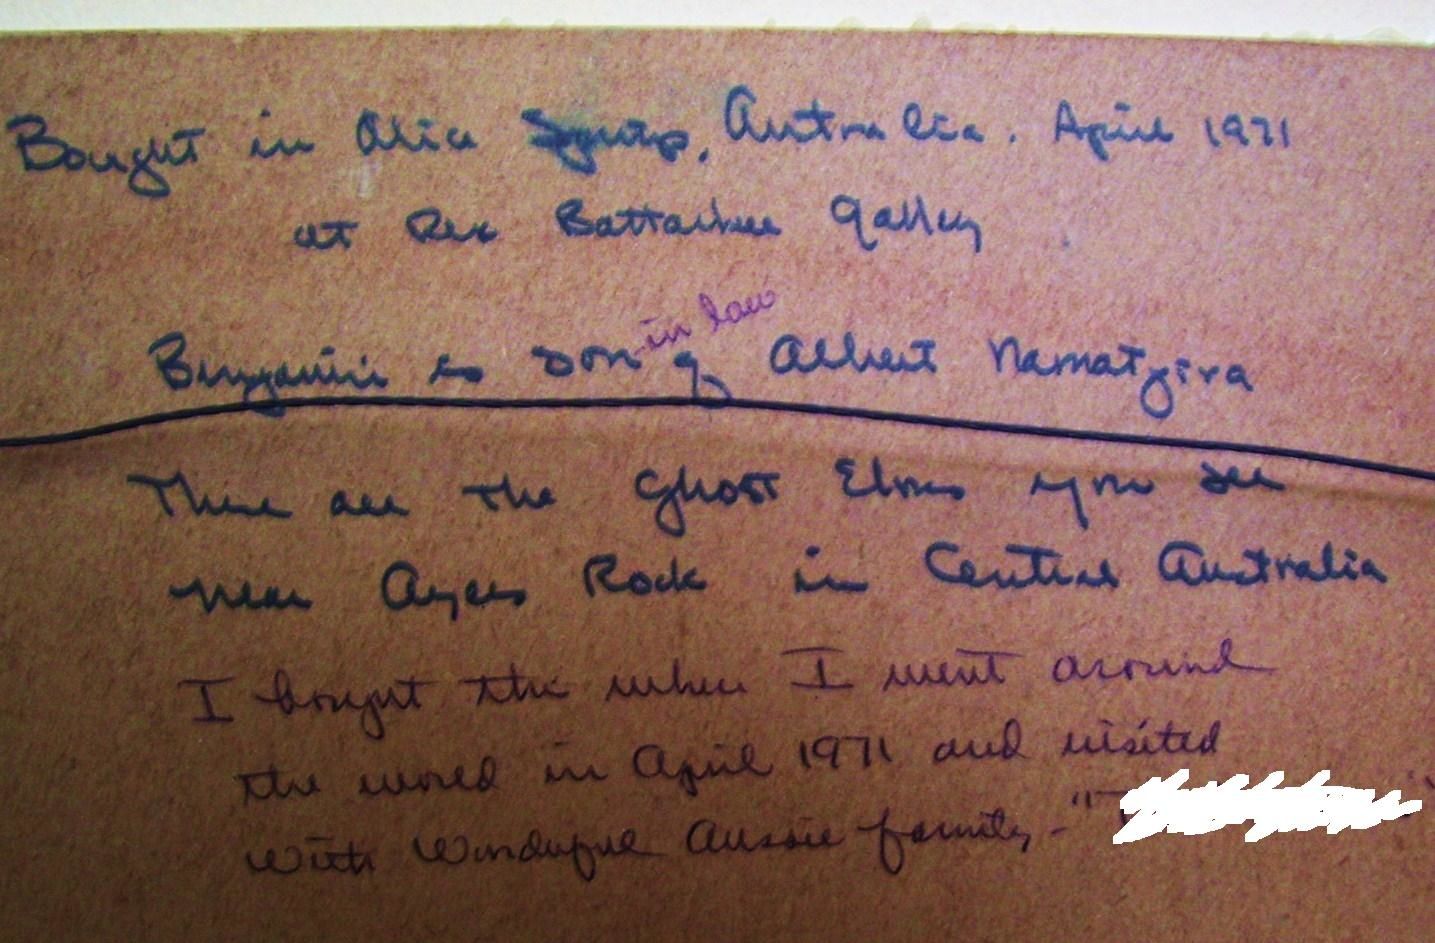 Bought in Alice Springs, Australia. April 1971
at Rex Battarbee Gallery
in law
Benjamin is son of Albert Namatjira
These are the Ghost Elms you see
near Ayers Rock in Central Australia
I bought this when I went around
the world in April 1971 and visited
with Wonderful Aussie family - "